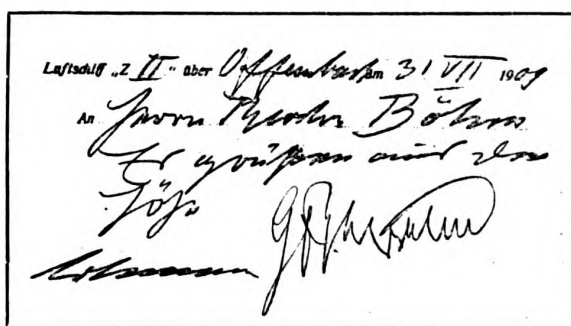 Luftschiff „Z II“ über Offenbach am 31 VII 1909
An Herrn Theodor Böhm
Es grüßen aus der
Höhe
GfZeppelin